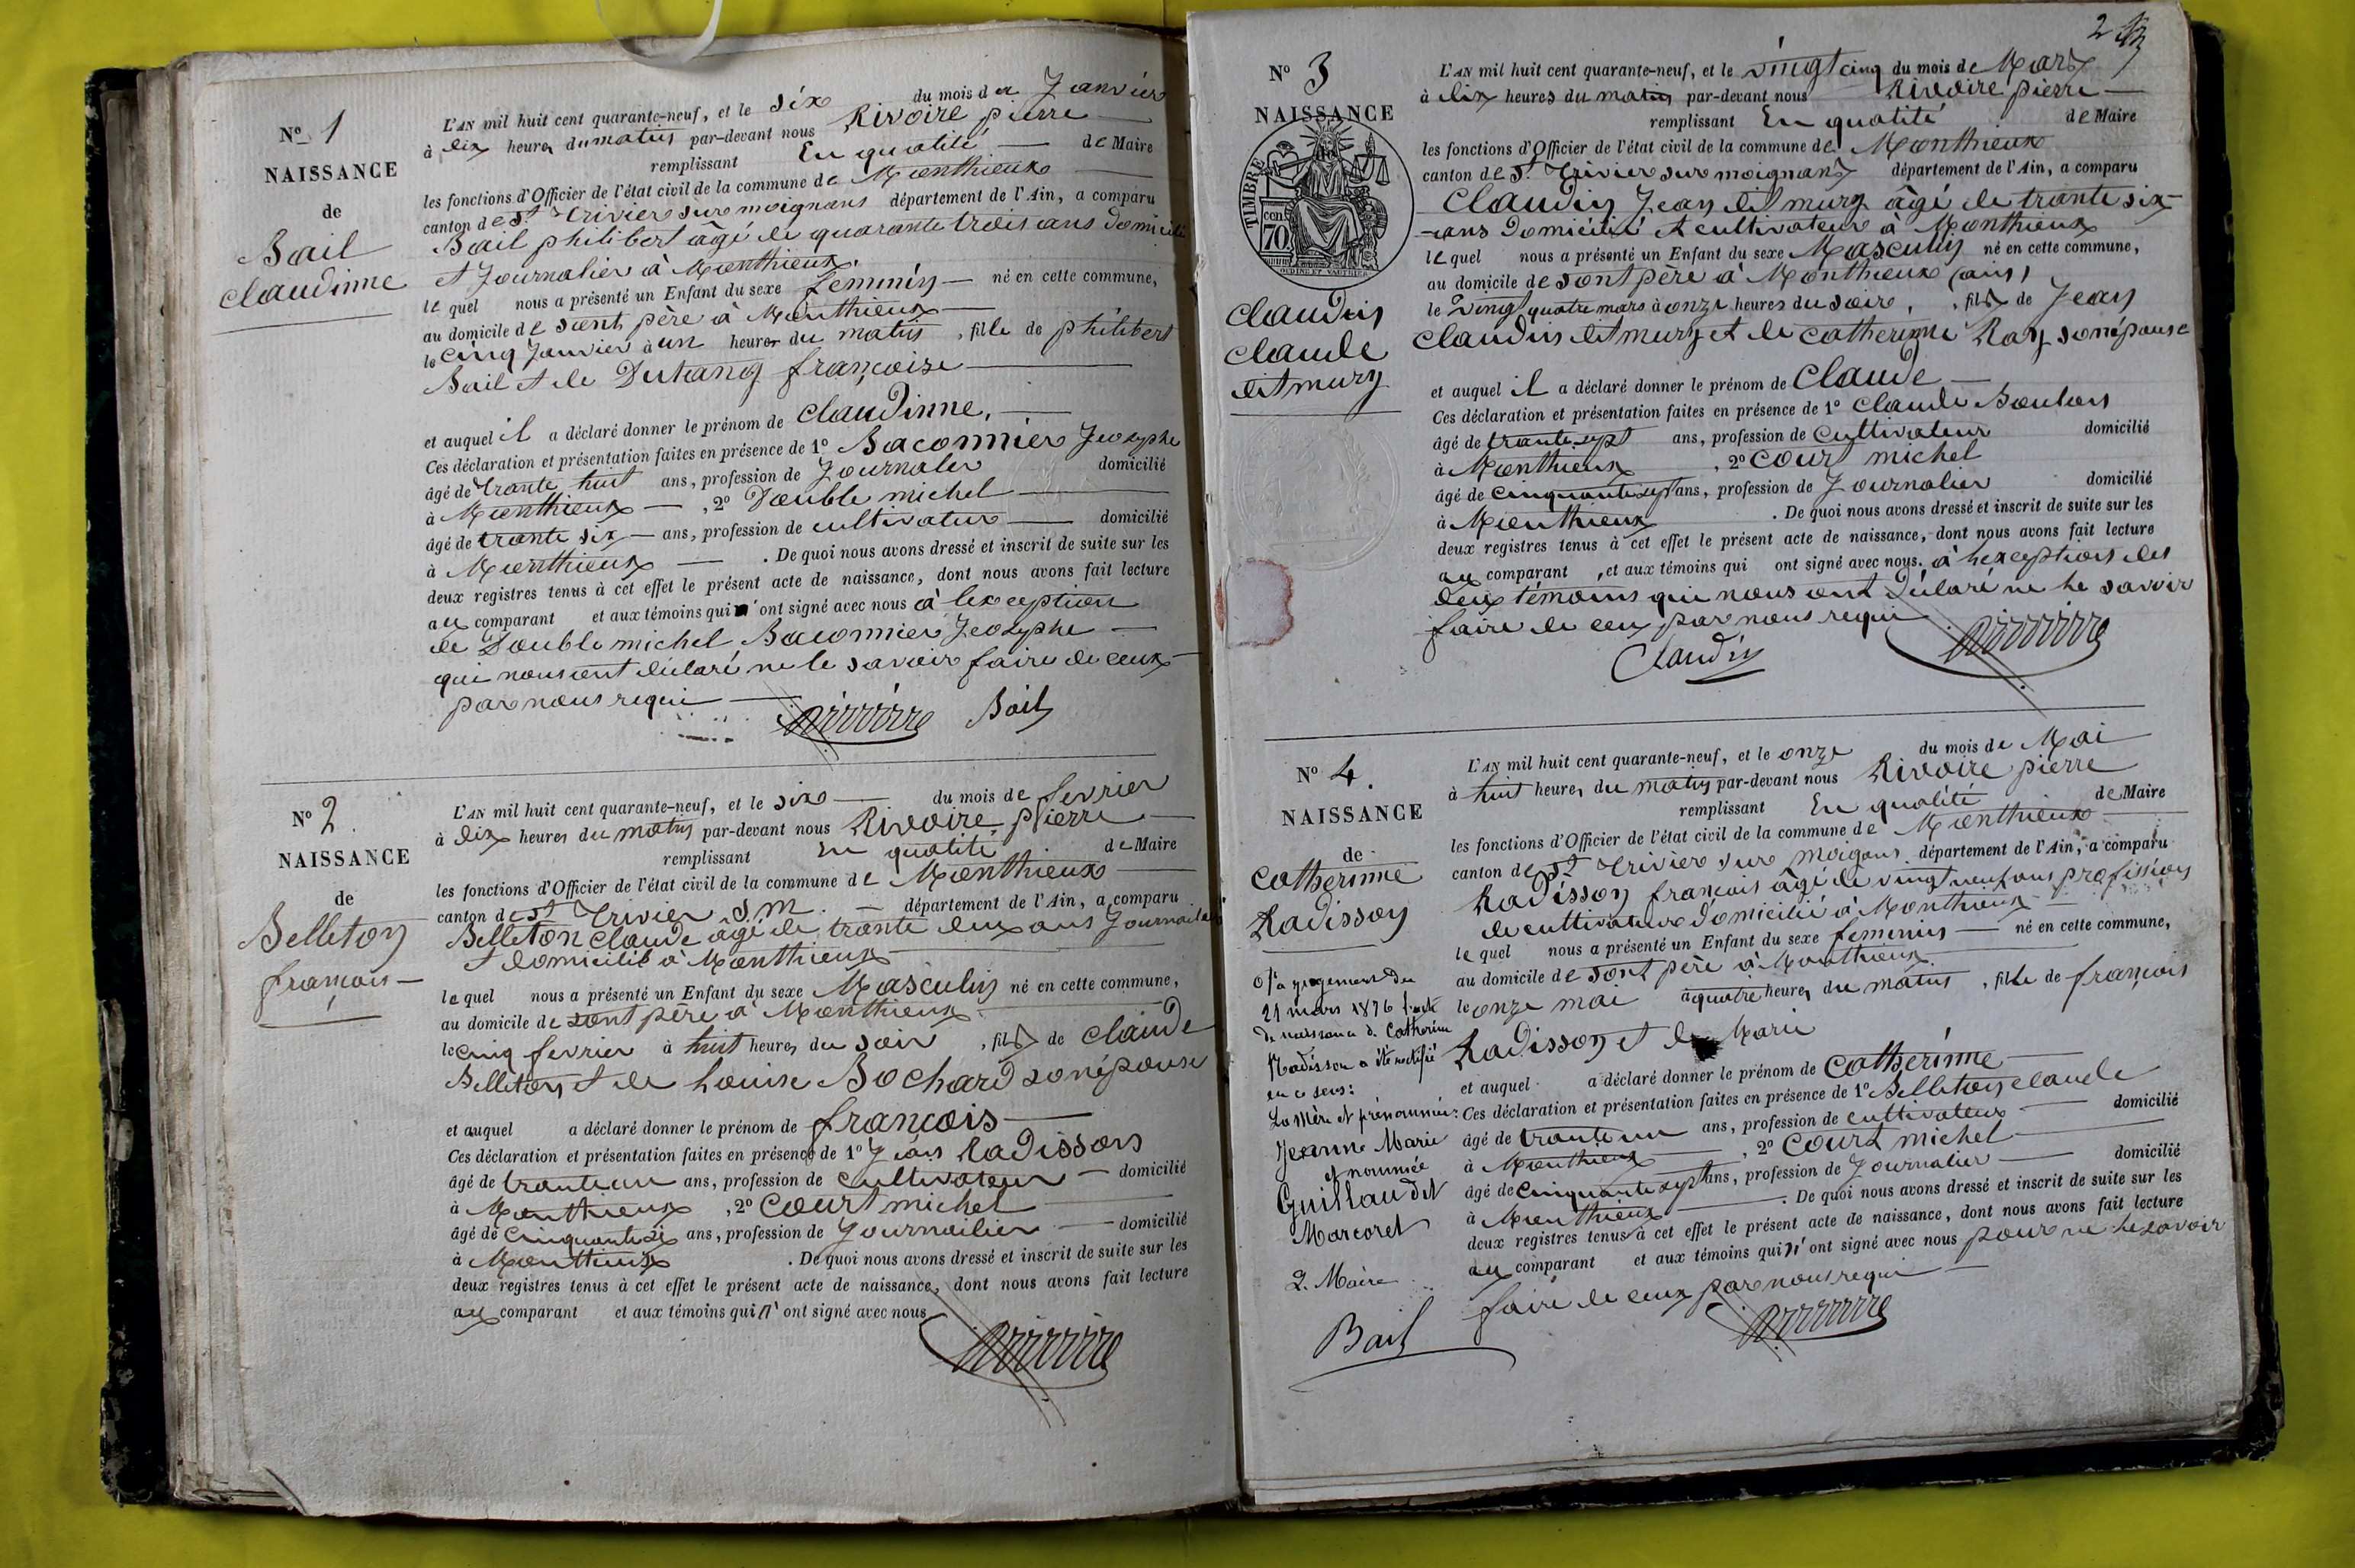 N° 1
NAISSANCE
de
Bail
Claudinne
L'AN mil huit cent quarante-neuf, et le six du mois de Janvier
à dix heures du matin par-devant nous Rivoire pierre
remplissant En qualité de Maire
les fonctions d'Officier de l'état civil de la commune de Monthieux
canton de St Trivier sur moignans département de l'Ain, a comparu
Bail philibert âgé de quarante trois ans domicilié
et Journalier à Monthieux
le quel nous a présenté un Enfant du sexe féminin né en cette commune,
au domicile de sont père à Monthieux
le cinq Janvier à un heures du matin, fille de philibert
Bail et de françoise
et auquel il a déclaré donner le prénom de Claudinne,
Ces déclaration et présentation faites en présence de 1° Baconnier Jeosyphe
âgé de trante huit ans, profession de Journaler domicilié
à Monthieux, 2° Double michel
âgé de trante six ans, profession de cultivateur domicilié
à Monthieux. De quoi nous avons dressé et inscrit de suite sur les
deux registres tenus à cet effet le présent acte de naissance, dont nous avons fait lecture
au comparant et aux témoins qui ont signé avec nous à lexception
de Double michel Baconnier Jeosyphe
qui nous ont déclaré ne le savoir faire de ceux
par nous requi
Rivoire Bail
N° 2.
NAISSANCE
de
Belleton
françois
L'AN mil huit cent quarante-neuf, et le six du mois de fevrier
à dix heures du matin par-devant nous Rivoire pierre
remplissant En qualité de Maire
les fonctions d'Officier de l'état civil de la commune de Monthieux
canton de St Trivier S. M. département de l'Ain, a comparu
Belleton Claude âgé de trante deux ans Journailer
et domicilié à Monthieux
le quel nous a présenté un Enfant du sexe Masculin né en cette commune,
au domicile de sont père à Monthieux
le cinq fevrier à huit heures du soir, fils de claude
Belleton et de Louise Bochard sonépouse
et auquel a déclaré donner le prénom de françois
Ces déclaration et présentation faites en présence de 1° Jean Radisson
âgé de trante un ans, profession de Cultivateur domicilié
à Monthieux, 2° Court michel
âgé de Cinquante six ans, profession de Journailier domicilié
à Monthieux. De quoi nous avons dressé et inscrit de suite sur les
deux registres tenus à cet effet le présent acte de naissance, dont nous avons fait lecture
au comparant et aux témoins qui n'ont signé avec nous
Rivoire
2
N° 3
NAISSANCE
TIMBRE
cen.
70
OUDINÉ ET VAUTHIER
Claudin
Claude
dit mury
L'AN mil huit cent quarante-neuf, et le vingt cinq du mois de Mars
à dix heures du matin par-devant nous Rivoire pierre
remplissant En qualité de Maire
les fonctions d'Officier de l'état civil de la commune de Monthieux
canton de St. Trivier sur moignans département de l'Ain, a comparu
Claudin Jean dit mury âgé de trante six
ans domicilié et cultivateur à Monthieux
le quel nous a présenté un Enfant du sexe Masculin né en cette commune,
au domicile de sont père à Monthieux (ain)
le vingt quatre mars à onze heures du soir, fils de Jean
Claudin dit mury et de catherinne Ray sonépouse
et auquel il a déclaré donner le prénom de Claude
Ces déclaration et présentation faites en présence de 1° Claude Boulon
âgé de trante sept ans, profession de Cultivateur domicilié
à Monthieux, 2° Court michel
âgé de Cinquante sept ans, profession de Journalier domicilié
à Monthieux. De quoi nous avons dressé et inscrit de suite sur les
deux registres tenus à cet effet le présent acte de naissance, dont nous avons fait lecture
au comparant, et aux témoins qui ont signé avec nous. à lexception des
deux témoins qui nous ont déclaré ne le savoir
faire de ceux par nous requi
Claudin Rivoire
N° 4.
NAISSANCE
de
Catherinne
Radisson
L'AN mil huit cent quarante-neuf, et le onze du mois de Mai
à huit heures du matin par-devant nous Rivoire pierre
remplissant En qualité de Maire
les fonctions d'Officier de l'état civil de la commune de Monthieux
canton de St Trivier sur moigans département de l'Ain, a comparu
Radisson francois âgé de vingt neuf ans profission
de cultivateur domicilié à Monthieux
le quel nous a présenté un Enfant du sexe feminin né en cette commune,
au domicile de sont père à Monthieux
le onze mai à quatre heures du matin, fille de françois
Radisson et de Marie
et auquel a déclaré donner le prénom de Catherinne
Ces déclaration et présentation faites en présence de 1° Belleton claude
âgé de trante un ans, profession de cultivateur domicilié
à Monthieux, 2° Court michel
âgé de Cinquante sept ans, profession de Journalier domicilié
à Monthieux. De quoi nous avons dressé et inscrit de suite sur les
deux registres tenus à cet effet le présent acte de naissance, dont nous avons fait lecture
au comparant et aux témoins qui n'ont signé avec nous pour ne le savoir
faire de ceux par nous requi
Rivoire
jugement du
21 mars 1876 l'acte
de naissance de Catherine
Radisson a été rectifié
en ce sens:
La Mère est prénommée:
Jeanne Marie
et nommée
Guillaudet
Marcoret
Maire
Bail